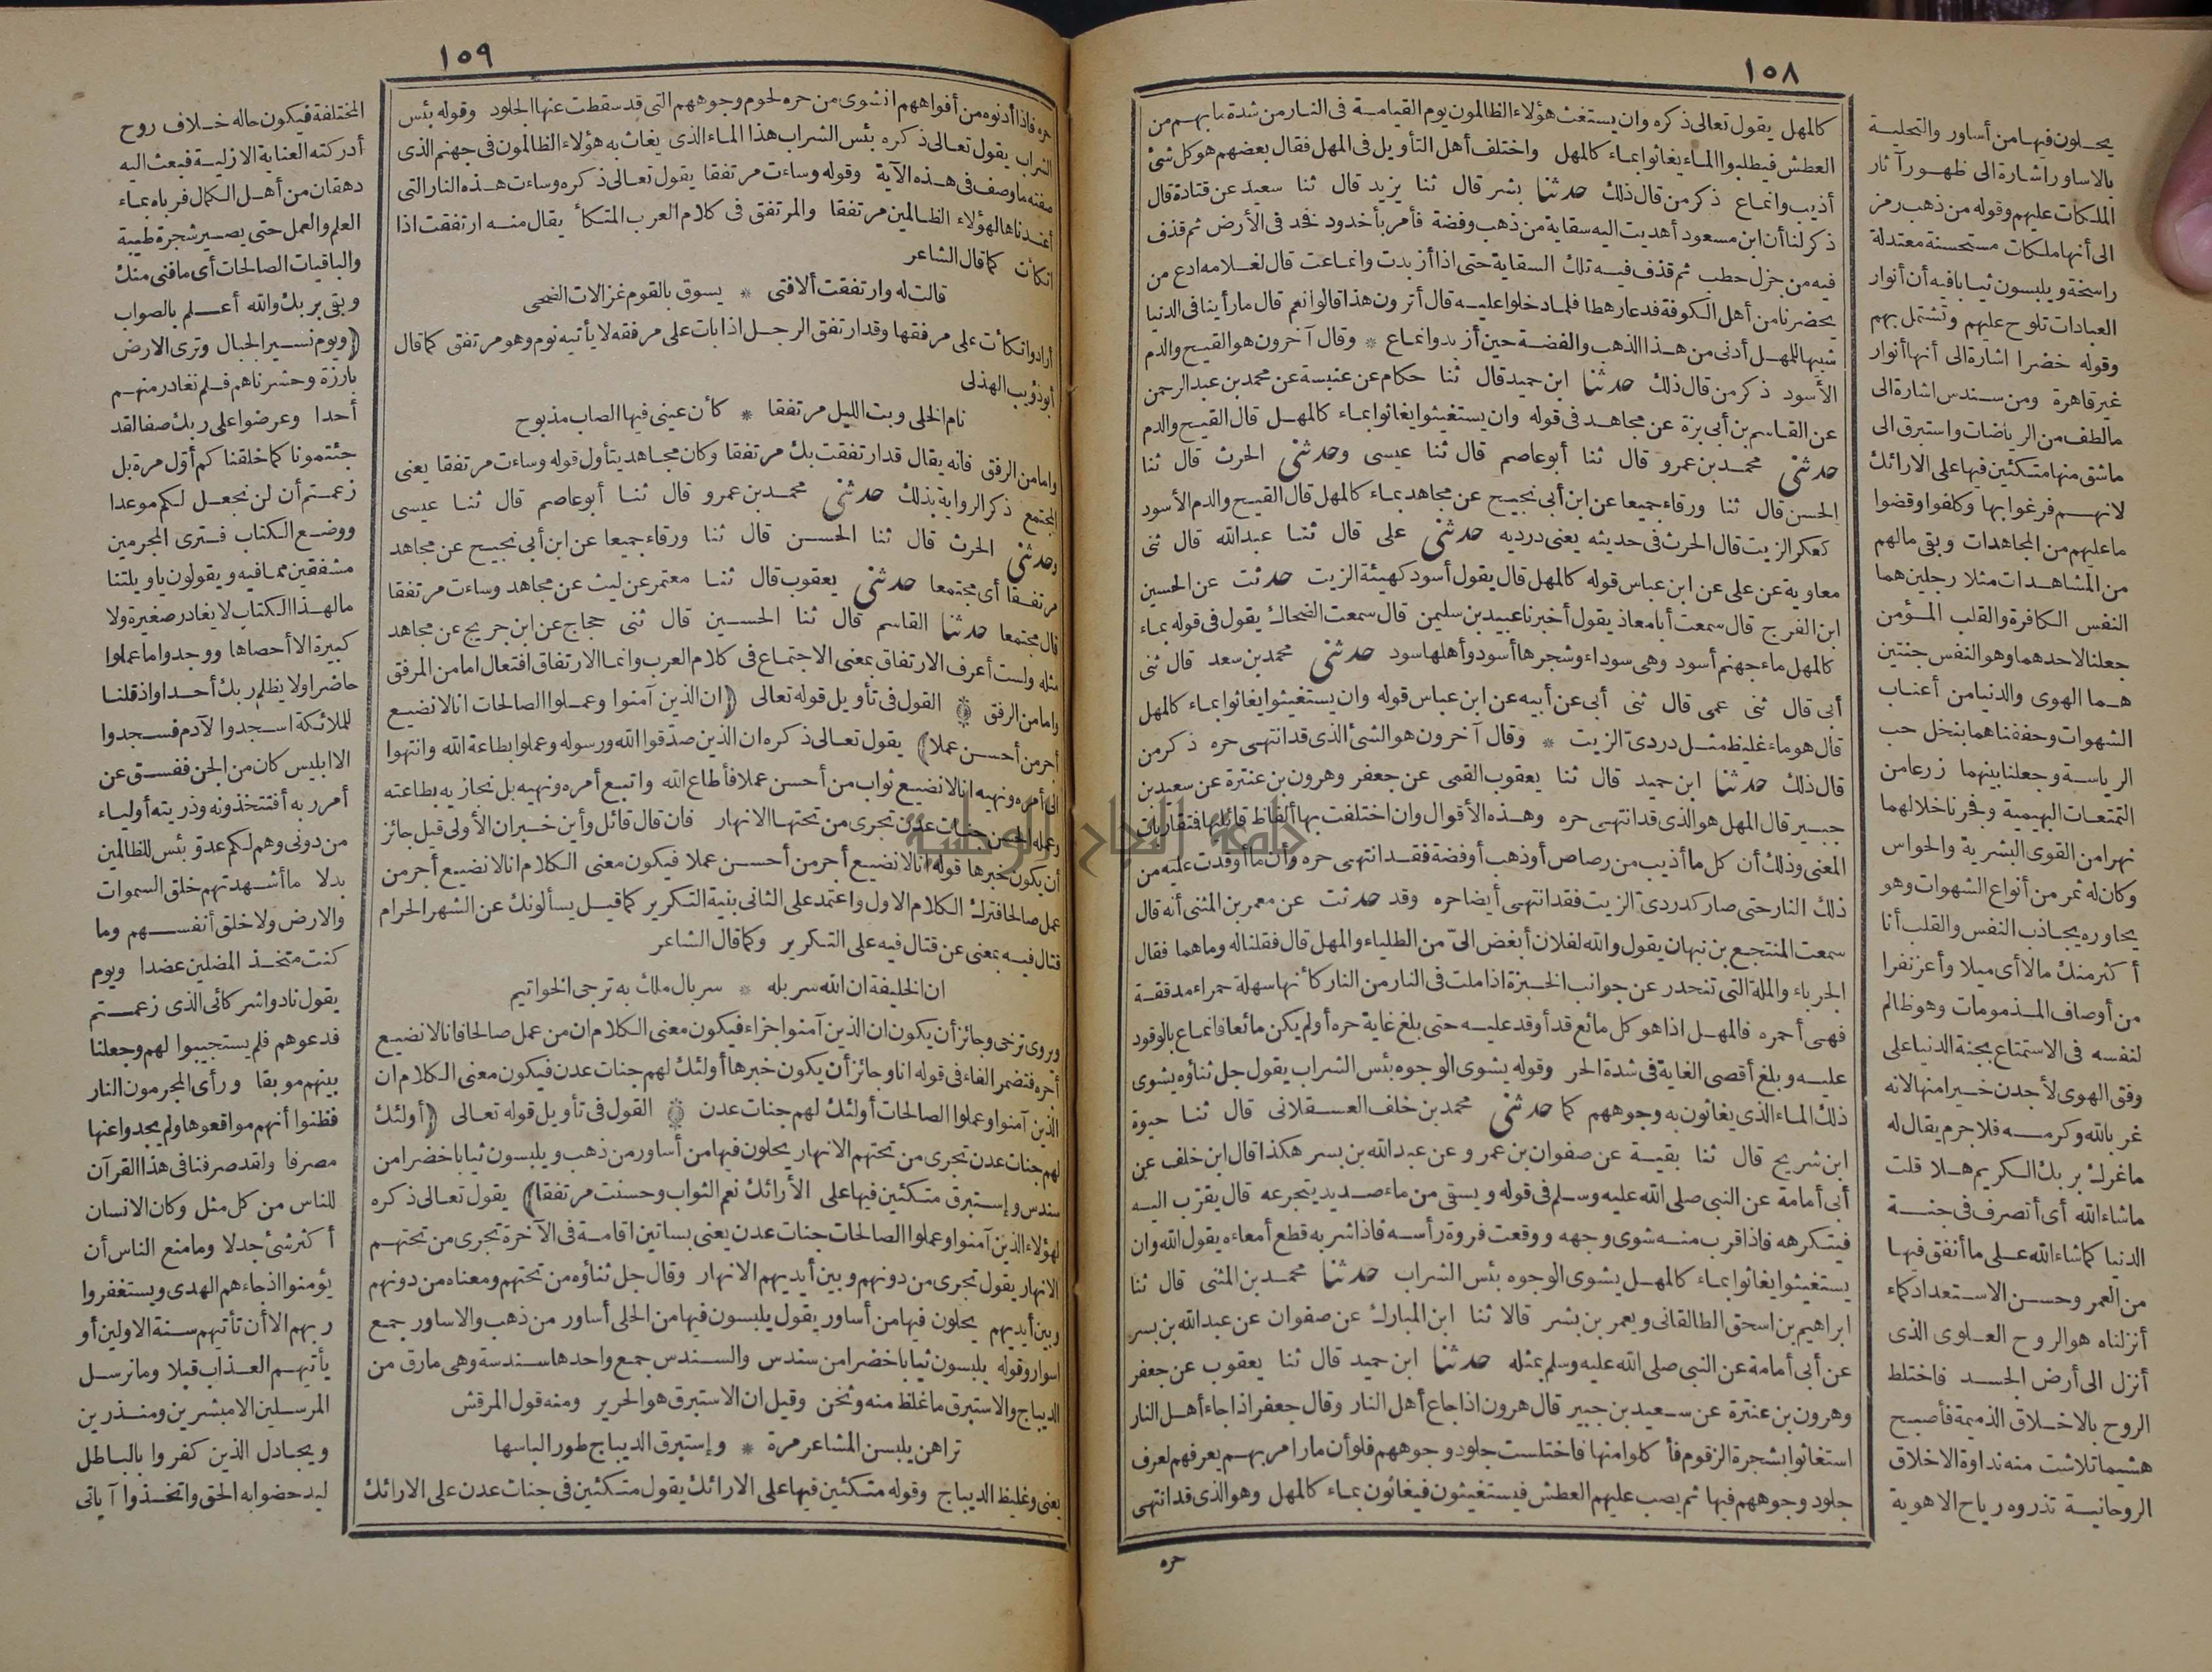 ١٥٨
كالمهل يقول تعالى ذكره وان يستغث هؤلاء الظالمون يوم القيامة فى النار من شدة ما بهم من
العطش فيطلبوا الماء يغاثوا بماء كالمهل واختلف أهل التأويل فى المهل فقال بعضهم هو كل شئ
أذيب وانماع ذكر من قال ذلك حدثنا بشر قال ثنا يزيد قال ثنا سعيد عن قتادة قال
ذكر لنا أن ابن مسعود أهديت اليه سقاية من ذهب وفضة فأمر بأخدود فخد فى الأرض ثم قذف
فيه من جزل حطب ثم قذف فيه تلك السقاية حتى اذا أزبدت وانماعت قال لغلامه ادع من
يحضرنا من أهل الكوفة فدعا رهطا فلما دخلوا عليه قال أترون هذا قالوا نعم قال ما رأينا فى الدنيا
شبيها للمهل أدنى من هذا الذهب والفضة حين أزبد وانماع * وقال آخرون هو القيح والدم
الأسود ذكر من قال ذلك حدثنا ابن حميد قال ثنا حكام عن عنبسة عن محمد بن عبد الرحمن
عن القاسم بن أبى بزة عن مجاهد فى قوله وان يستغيثوا يغاثوا بماء كالمهل قال القيح والدم
حدثنى محمد بن عمرو قال ثنا أبو عاصم قال ثنا عيسى وحدثنى الحرث قال ثنا
الحسن قال ثنا ورقاء جميعا عن ابن أبى نجيح عن مجاهد بماء كالمهل قال القيح والدم الأسود
كعكر الزيت قال الحرث فى حديثه يعنى درديه حدثنى على قال ثنا عبد الله قال ثنى
معاوية عن على عن ابن عباس قوله كالمهل قال يقول أسود كهيئة الزيت حدثت عن الحسين
ابن الفرج قال سمعت أبا معاذ يقول أخبرنا عبيد بن سليمن قال سمعت الضحاك يقول فى قوله بماء
كالمهل ماء جهنم أسود وهى سوداء وشجرها أسود وأهلها سود حدثنى محمد بن سعد قال ثنى
أبى قال ثنى عمى قال ثنى أبى عن أبيه عن ابن عباس قوله وان يستغيثوا يغاثوا بماء كالمهل
قال هو ماء غليظ مثل دردىّ الزيت * وقال آخرون هو الشئ الذى قد انتهى حره ذكر من
قال ذلك حدثنا ابن حميد قال ثنا يعقوب القمى عن جعفر وهرون بن عنترة عن سعيد بن
جبير قال المهل هو الذى قد انتهى حره وهذه الأقوال وان اختلفت بها ألفاظ قائليها فمتقاربات
المعنى وذلك أن كل ما أذيب من رصاص أو ذهب أو فضة فقد انتهى حره وأن ما أوقدت عليه من
ذلك النار حتى صار كدردىّ الزيت فقد انتهى أيضا حره وقد حدثت عن معمر بن المثنى أنه قال
سمعت المنتجع بن نبهان يقول والله لفلان أبغض الىّ من الطلياء والمهل قال فقلنا له وما هما فقال
الجرباء والملة التى تنحدر عن جوانب الخبزة اذا ملت فى النار من النار كأنها سهلة حمراء مدققة
فهى أحمره فالمهل اذا هو كل مائع قد أوقد عليه حتى بلغ غاية حره أو لم يكن مائعا فانماع بالوقود
عليه وبلغ أقصى الغاية فى شدة الحر وقوله يشوى الوجوه بئس الشراب يقول جل ثناؤه يشوى
ذلك الماء الذى يغاثون به وجوههم كما حدثنى محمد بن خلف العسقلانى قال ثنا حيوة
ابن شريح قال ثنا بقية عن صفوان بن عمرو عن عبد الله بن بسر هكذا قال ابن خلف عن
أبى أمامة عن النبى صلى الله عليه وسلم فى قوله ويسقى من ماء صديد يتجرعه قال يقرّب اليه
فيتكرهه فاذا قرب منه شوى وجهه ووقعت فروة رأسه فاذا شربه قطع أمعاءه يقول الله وان
يستغيثوا يغاثوا بماء كالمهل يشوى الوجوه بئس الشراب حدثنا محمد بن المثنى قال ثنا
ابراهيم بن اسحق الطالقانى ويعمر بن بشر قالا ثنا ابن المبارك عن صفوان عن عبد الله بن بسر
عن أبى أمامة عن النبى صلى الله عليه وسلم بمثله حدثنا ابن حميد قال ثنا يعقوب عن جعفر
وهرون بن عنترة عن سعيد بن جبير قال هرون اذا جاع أهل النار وقال جعفر اذا جاء أهل النار
استغاثوا بشجرة الزقوم فأكلوا منها فاختلست جلود وجوههم فلو أن مارا مر بهم يعرفهم لعرف
جلود وجوههم فيها ثم يصب عليهم العطش فيستغيثون فيغاثون بماء كالمهل وهو الذى قد انتهى
حره
يحلون فيها من أساور والتحلية
بالاساور اشارة الى ظهور آثار
الملكات عليهم وقوله من ذهب رمز
الى أنها ملكات مستحسنة معتدلة
راسخة ويلبسون ثيابا فيه أن أنوار
العبادات تلوح عليهم وتشتمل بهم
وقوله خضرا اشارة الى أنها أنوار
غير قاهرة ومن سندس اشارة الى
ما لطف من الرياضات واستبرق الى
ما شق منها متكئين فيها على الارائك
لانهم فرغوا بها وكلفوا وقضوا
ما عليهم من المجاهدات وبقى مالهم
من المشاهدات مثلا رجلين هما
النفس الكافرة والقلب المؤمن
جعلنا لاحدهما وهو النفس جنتين
هما الهوى والدنيا من أعناب
الشهوات وحففناهما بنخل حب
الرياسة وجعلنا بينهما زرعا من
التمتعات البهيمية وفجرنا خلالهما
نهرا من القوى البشرية والحواس
وكان له ثمر من أنواع الشهوات وهو
يحاوره يجاذب النفس والقلب أنا
أكثر منك مالا أى ميلا وأعز نفرا
من أوصاف المذمومات وهو ظالم
لنفسه فى الاستمتاع بجنة الدنيا على
وفق الهوى لأجدن خيرا منها لانه
غر بالله وكرمه فلا جرم يقال له
ما غرك بربك الكريم هلا قلت
ما شاء الله أى أتصرف فى جنة
الدنيا كما شاء الله على ما أنفق فيها
من العمر وحسن الاستعداد كماء
أنزلناه هو الروح العلوى الذى
أنزل الى أرض الجسد فاختلط
الروح بالاخلاق الذميمة فأصبح
هشيما تلاشت منه نداوة الاخلاق
الروحانية تذروه رياح الاهوية
١٥٩
حره فاذا أدنوه من أفواههم انشوى من حره لحوم وجوههم التى قد سقطت عنها الجلود وقوله بئس
الشراب يقول تعالى ذكره بئس الشراب هذا الماء الذى يغاث به هؤلاء الظالمون فى جهنم الذى
صفته ما وصف فى هذه الآية وقوله وساءت مرتفقا يقول تعالى ذكره وساءت هذه النار التى
أعتدناها لهؤلاء الظالمين مرتفقا والمرتفق فى كلام العرب المتكأ يقال منه ارتفقت اذا
اتكأت كما قال الشاعر
قالت له وارتفقت ألا فتى * يسوق بالقوم غزالات الضحى
أراد واتكأت على مرفقها وقد ارتفق الرجل اذا بات على مرفقه لا يأتيه نوم وهو مرتفق كما قال
أبو ذؤيب الهذلى
نام الخلى وبت الليل مرتفقا * كأن عينى فيها الصاب مذبوح
وامامن الرفق فانه يقال قد ارتفقت بك مرتفقا وكان مجاهد يتأول قوله وساءت مرتفقا يعنى
المجتمع ذكر الرواية بذلك حدثنى محمد بن عمرو قال ثنا أبو عاصم قال ثنا عيسى
وحدثنى الحرث قال ثنا الحسن قال ثنا ورقاء جميعا عن ابن أبى نجيح عن مجاهد
مرتفقا أى مجتمعا حدثنى يعقوب قال ثنا معتمر عن ليث عن مجاهد وساءت مرتفقا
قال مجتمعا حدثنا القاسم قال ثنا الحسين قال ثنى حجاج عن ابن جريج عن مجاهد
مثله ولست أعرف الارتفاق بمعنى الاجتماع فى كلام العرب وانما الارتفاق افتعال امامن المرفق
وامامن الرفق القول فى تأويل قوله تعالى (ان الذين آمنوا وعملوا الصالحات انا لا نضيع
أجر من أحسن عملا) يقول تعالى ذكره ان الذين صدّقوا الله ورسوله وعملوا بطاعة الله وانتهوا
الى أمره ونهيه انا لا نضيع ثواب من أحسن عملا فأطاع الله واتبع أمره ونهيه بل نجازيه بطاعته
وعمله الحسن جنات عدن تجرى من تحتها الانهار فان قال قائل وأين خبر ان الأولى قيل جائز
أن يكون خبرها قوله انا لا نضيع أجر من أحسن عملا فيكون معنى الكلام انا لا نضيع أجر من
عمل صالحا فترك الكلام الاول واعتمد على الثانى بنية التكرير كما قيل يسألونك عن الشهر الحرام
قتال فيه بمعنى عن قتال فيه على التكرير وكما قال الشاعر
ان الخليفة ان الله سربله * سربال ملك به ترجى الخواتيم
ويروى ترخى وجائز أن يكون ان الذين آمنوا جزاء فيكون معنى الكلام ان من عمل صالحا فانا لا نضيع
أجره فتضمر الفاء فى قوله انا وجائز أن يكون خبرها أولئك لهم جنات عدن فيكون معنى الكلام ان
الذين آمنوا وعملوا الصالحات أولئك لهم جنات عدن القول فى تأويل قوله تعالى (أولئك
لهم جنات عدن تجرى من تحتهم الانهار يحلون فيها من أساور من ذهب ويلبسون ثيابا خضرا من
سندس وإستبرق متكئين فيها على الأرائك نعم الثواب وحسنت مرتفقا) يقول تعالى ذكره
لهؤلاء الذين آمنوا وعملوا الصالحات جنات عدن يعنى بساتين اقامة فى الآخرة تجرى من تحتهم
الانهار يقول تجرى من دونهم وبين أيديهم الانهار وقال جل ثناؤه من تحتهم ومعناه من دونهم
وبين أيديهم يحلون فيها من أساور يقول يلبسون فيها من الحلى أساور من ذهب والاساور جمع
اسوار وقوله يلبسون ثيابا خضرا من سندس والسندس جمع واحدها سندسة وهى مارق من
الديباج والاستبرق ما غلظ منه وثخن وقيل ان الاستبرق هو الحرير ومنه قول المرقش
تراهن يلبسن المشاعر مرة * وإستبرق الديباج طورا لباسها
يعنى وغليظ الديباج وقوله متكئين فيها على الارائك يقول متكئين فى جنات عدن على الارائك
المختلفة فيكون حاله خلاف روح
أدركته العناية الازلية فبعث اليه
دهقان من أهل الكمال فرباه بماء
العلم والعمل حتى يصير شجرة طيبة
والباقيات الصالحات أى ما فنى منك
وبقى بربك والله أعلم بالصواب
(ويوم نسير الجبال وترى الارض
بارزة وحشرناهم فلم نغادر منهم
أحدا وعرضوا على ربك صفا لقد
جئتمونا كما خلقناكم أوّل مرة بل
زعمتم أن لن نجعل لكم موعدا
ووضع الكتاب فترى المجرمين
مشفقين مما فيه ويقولون يا ويلتنا
مال هذا الكتاب لا يغادر صغيرة ولا
كبيرة الا أحصاها ووجدوا ما عملوا
حاضرا ولا يظلم ربك أحدا واذ قلنا
للملائكة اسجدوا لآدم فسجدوا
الا ابليس كان من الجن ففسق عن
أمر ربه أفتتخذونه وذريته أولياء
من دونى وهم لكم عدو بئس للظالمين
بدلا ما أشهدتهم خلق السموات
والارض ولا خلق أنفسهم وما
كنت متخذ المضلين عضدا ويوم
يقول نادوا شركائى الذى زعمتم
فدعوهم فلم يستجيبوا لهم وجعلنا
بينهم موبقا ورأى المجرمون النار
فظنوا أنهم مواقعوها ولم يجدوا عنها
مصرفا ولقد صرفنا فى هذا القرآن
للناس من كل مثل وكان الانسان
أكثر شئ جدلا وما منع الناس أن
يؤمنوا اذ جاءهم الهدى ويستغفروا
ربهم الا أن تأتيهم سنة الاولين أو
يأتيهم العذاب قبلا وما نرسل
المرسلين الا مبشرين ومنذرين
ويجادل الذين كفروا بالباطل
ليدحضوا به الحق واتخذوا آياتى